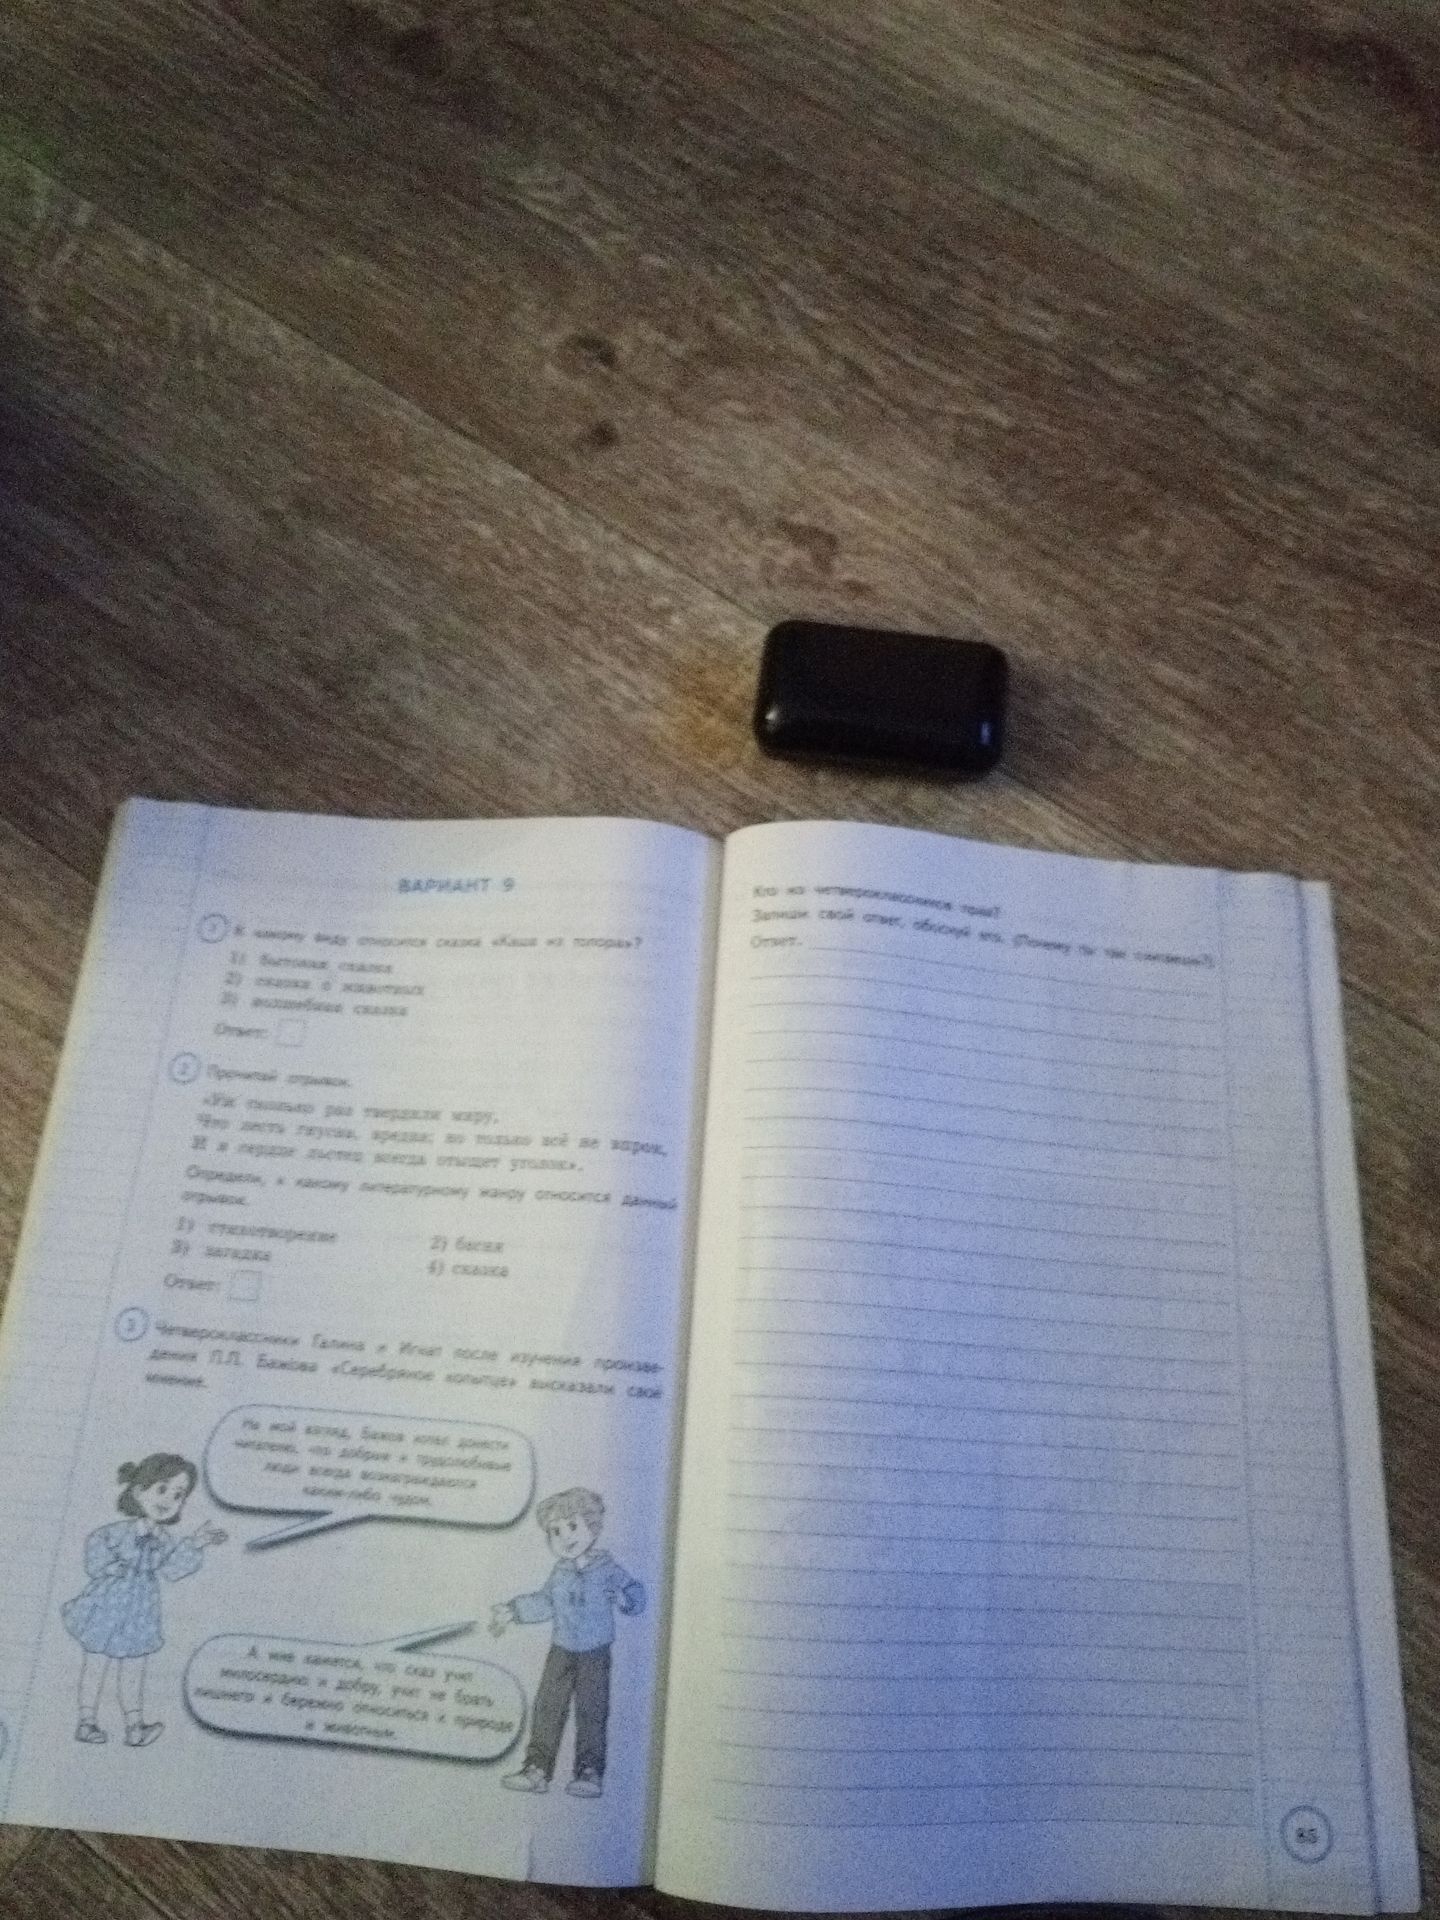 ВАРИАНТ 9
1 К какому виду относится сказка «Каша из топора»?
1) бытовая сказка
2) сказка о животных
3) волшебная сказка
Ответ:
2 Прочитай отрывок.
«Уж сколько раз твердили миру,
Что лесть гнусна, вредна; но только всё не впрок,
И в сердце льстец всегда отыщет уголок».
Определи, к какому литературному жанру относится данный
отрывок.
1) стихотворение 2) басня
3) загадка 4) сказка
Ответ:
3 Четвероклассники Галина и Игнат после изучения произве-
дения П.П. Бажова «Серебряное копытце» высказали своё
мнение.
На мой взгляд, Бажов хотел донести
читателю, что добрые и трудолюбивые
люди всегда вознаграждаются
каким-либо чудом.
А мне кажется, что сказ учит
милосердию и добру, учит не брать
лишнего и бережно относиться к природе
и животным.
Кто из четвероклассников прав?
Запиши свой ответ, обоснуй его. (Почему ты так считаешь?)
Ответ.
85